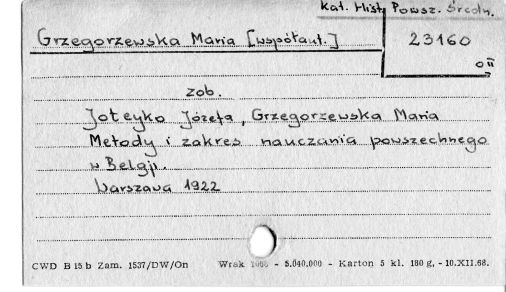 Kat. Hist. Powsz. Średn.
Grzegorzewska Maria [współaut.]
23160
II
zob.
Joteyko Józefa, Grzegorzewska Maria
Metody i zakres nauczania powszechnego
w Belgji.
Warszawa 1922
CWD B 15 b Zam. 1537/DW/On Wrak - 5.040.000 - Karton 5 kl. 180 g, - 10.XII.68.